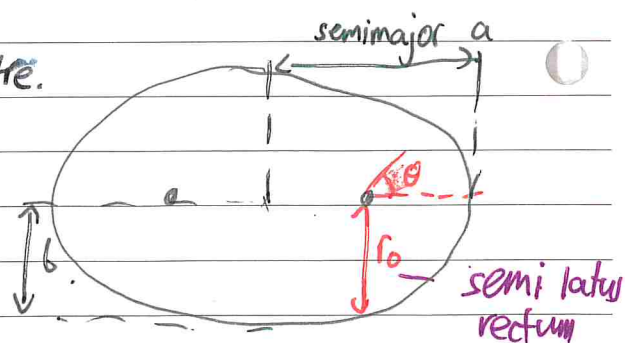 semimajor a
tre.
θ
b
r₀
semi latus
rectum